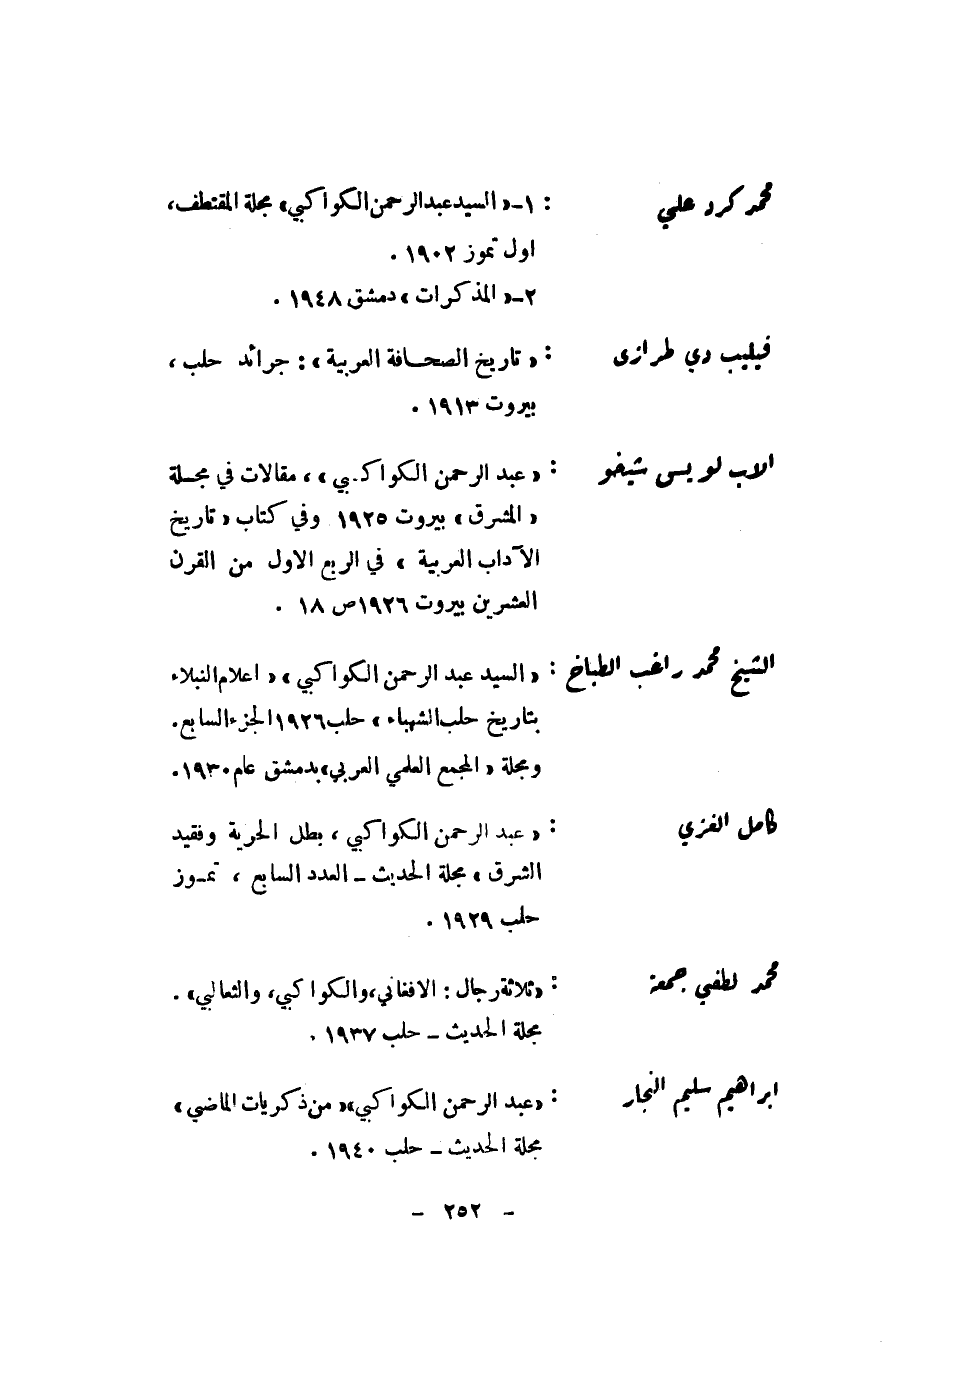 محمد كرد علي : ١ـ« السيد عبد الرحمن الكواكبي» مجلة المقتطف،
اول تموز ١٩٠٢ .
٢ـ« المذكرات » دمشق ١٩٤٨ .
فيليب دي طرازى : « تاريخ الصحافة العربية » : جرائد حلب ،
بيروت ١٩١٣ .
الاب لويس شيخو : « عبد الرحمن الكواكبي » ، مقالات في مجلة
« المشرق » بيروت ١٩٢٥ وفي كتاب « تاريخ
الآداب العربية » في الربع الاول من القرن
العشرين بيروت ١٩٢٦ ص ١٨ .
الشيخ محمد راغب الطباخ : « السيد عبد الرحمن الكواكبي » « اعلام النبلاء
بتاريخ حلب الشهباء » حلب ١٩٢٦ الجزء السابع.
ومجلة « المجمع العلمي العربي» بدمشق عام ١٩٣٠.
كامل الغزي : « عبد الرحمن الكواكبي ، بطل الحرية وفقيد
الشرق » مجلة الحديث ـ العدد السابع ، تمـوز
حلب ١٩٢٩ .
محمد لطفي جمعة : «ثلاثة رجال : الافغاني، والكواكبي، والثعالبي» .
مجلة الحديث ـ حلب ١٩٣٧ .
ابراهيم سليم النجار : «عبد الرحمن الكواكبي»« من ذكريات الماضي »
مجلة الحديث ـ حلب ١٩٤٠ .
- ٢٥٢ -